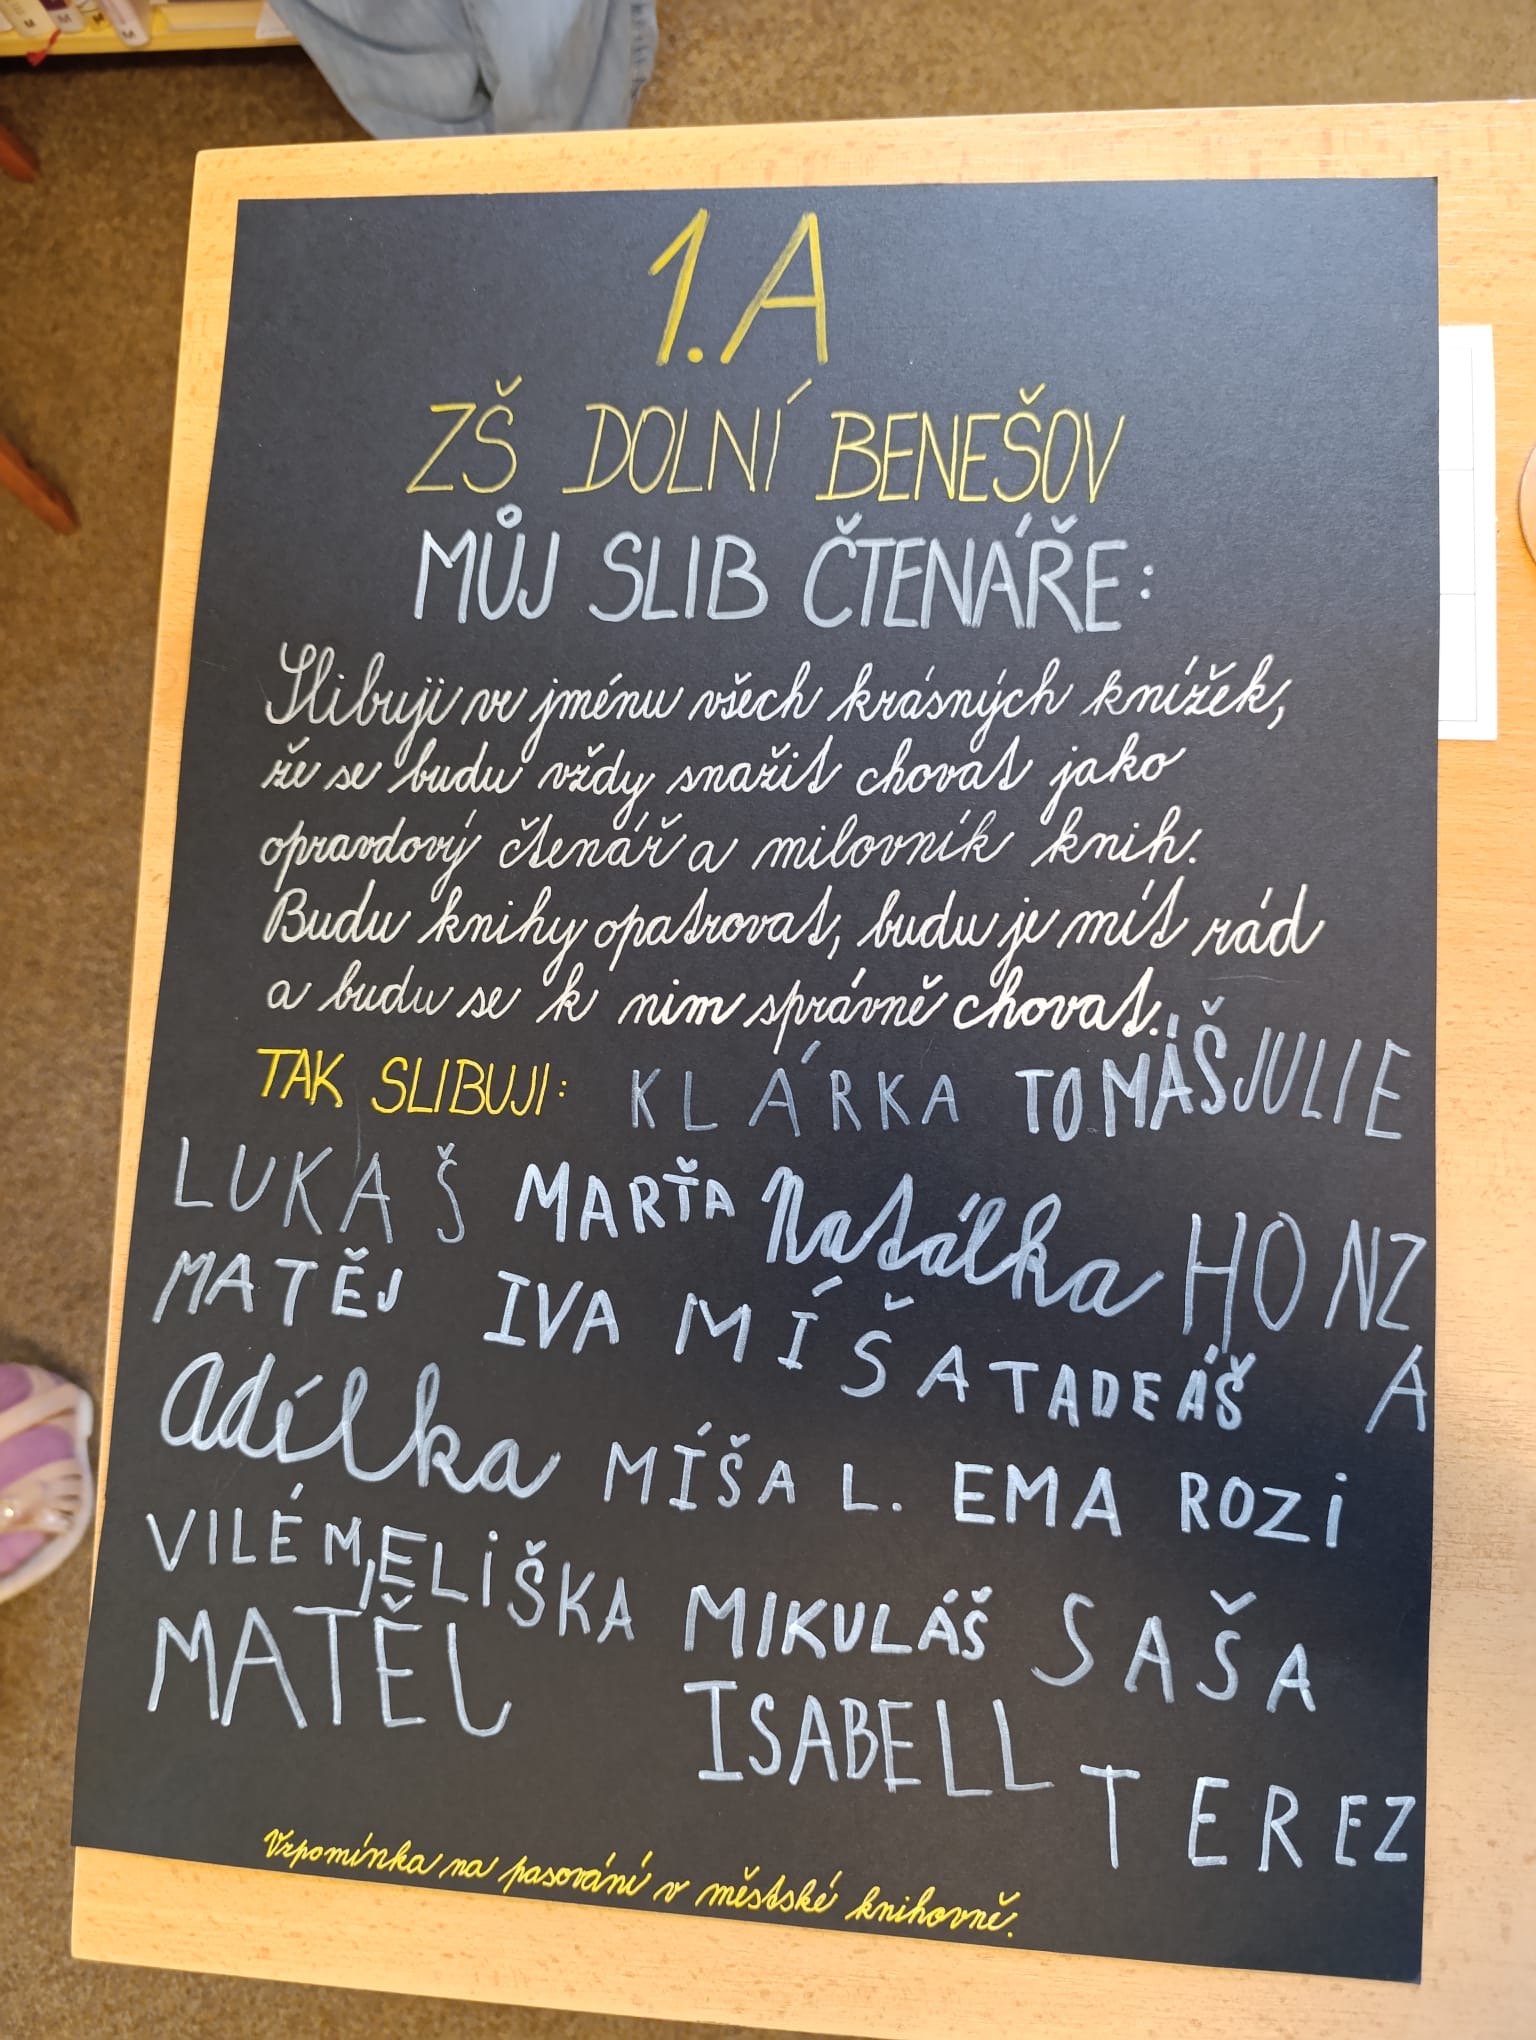 1.A
ZŠ DOLNÍ BENEŠOV
MŮJ SLIB ČTENÁŘE:
Slibuji ve jménu všech krásných knížek,
že se budu vždy snažit chovat jako
opravdový čtenář a milovník knih.
Budu knihy opatrovat, budu je mít rád
a budu se k nim správně chovat.
TAK SLIBUJI: KLÁRKA TOMÁŠ JULIE
LUKAŠ MARŤA Natálka HONZA
MATĚJ IVA MÍŠA TADEÁŠ
Adílka MÍŠA L. EMA ROZi
VILÉM, ELiŠKA MIKULÁŠ SAŠA
MATĚJ ISABELL TEREZ
Vzpomínka na pasování v městské knihovně.